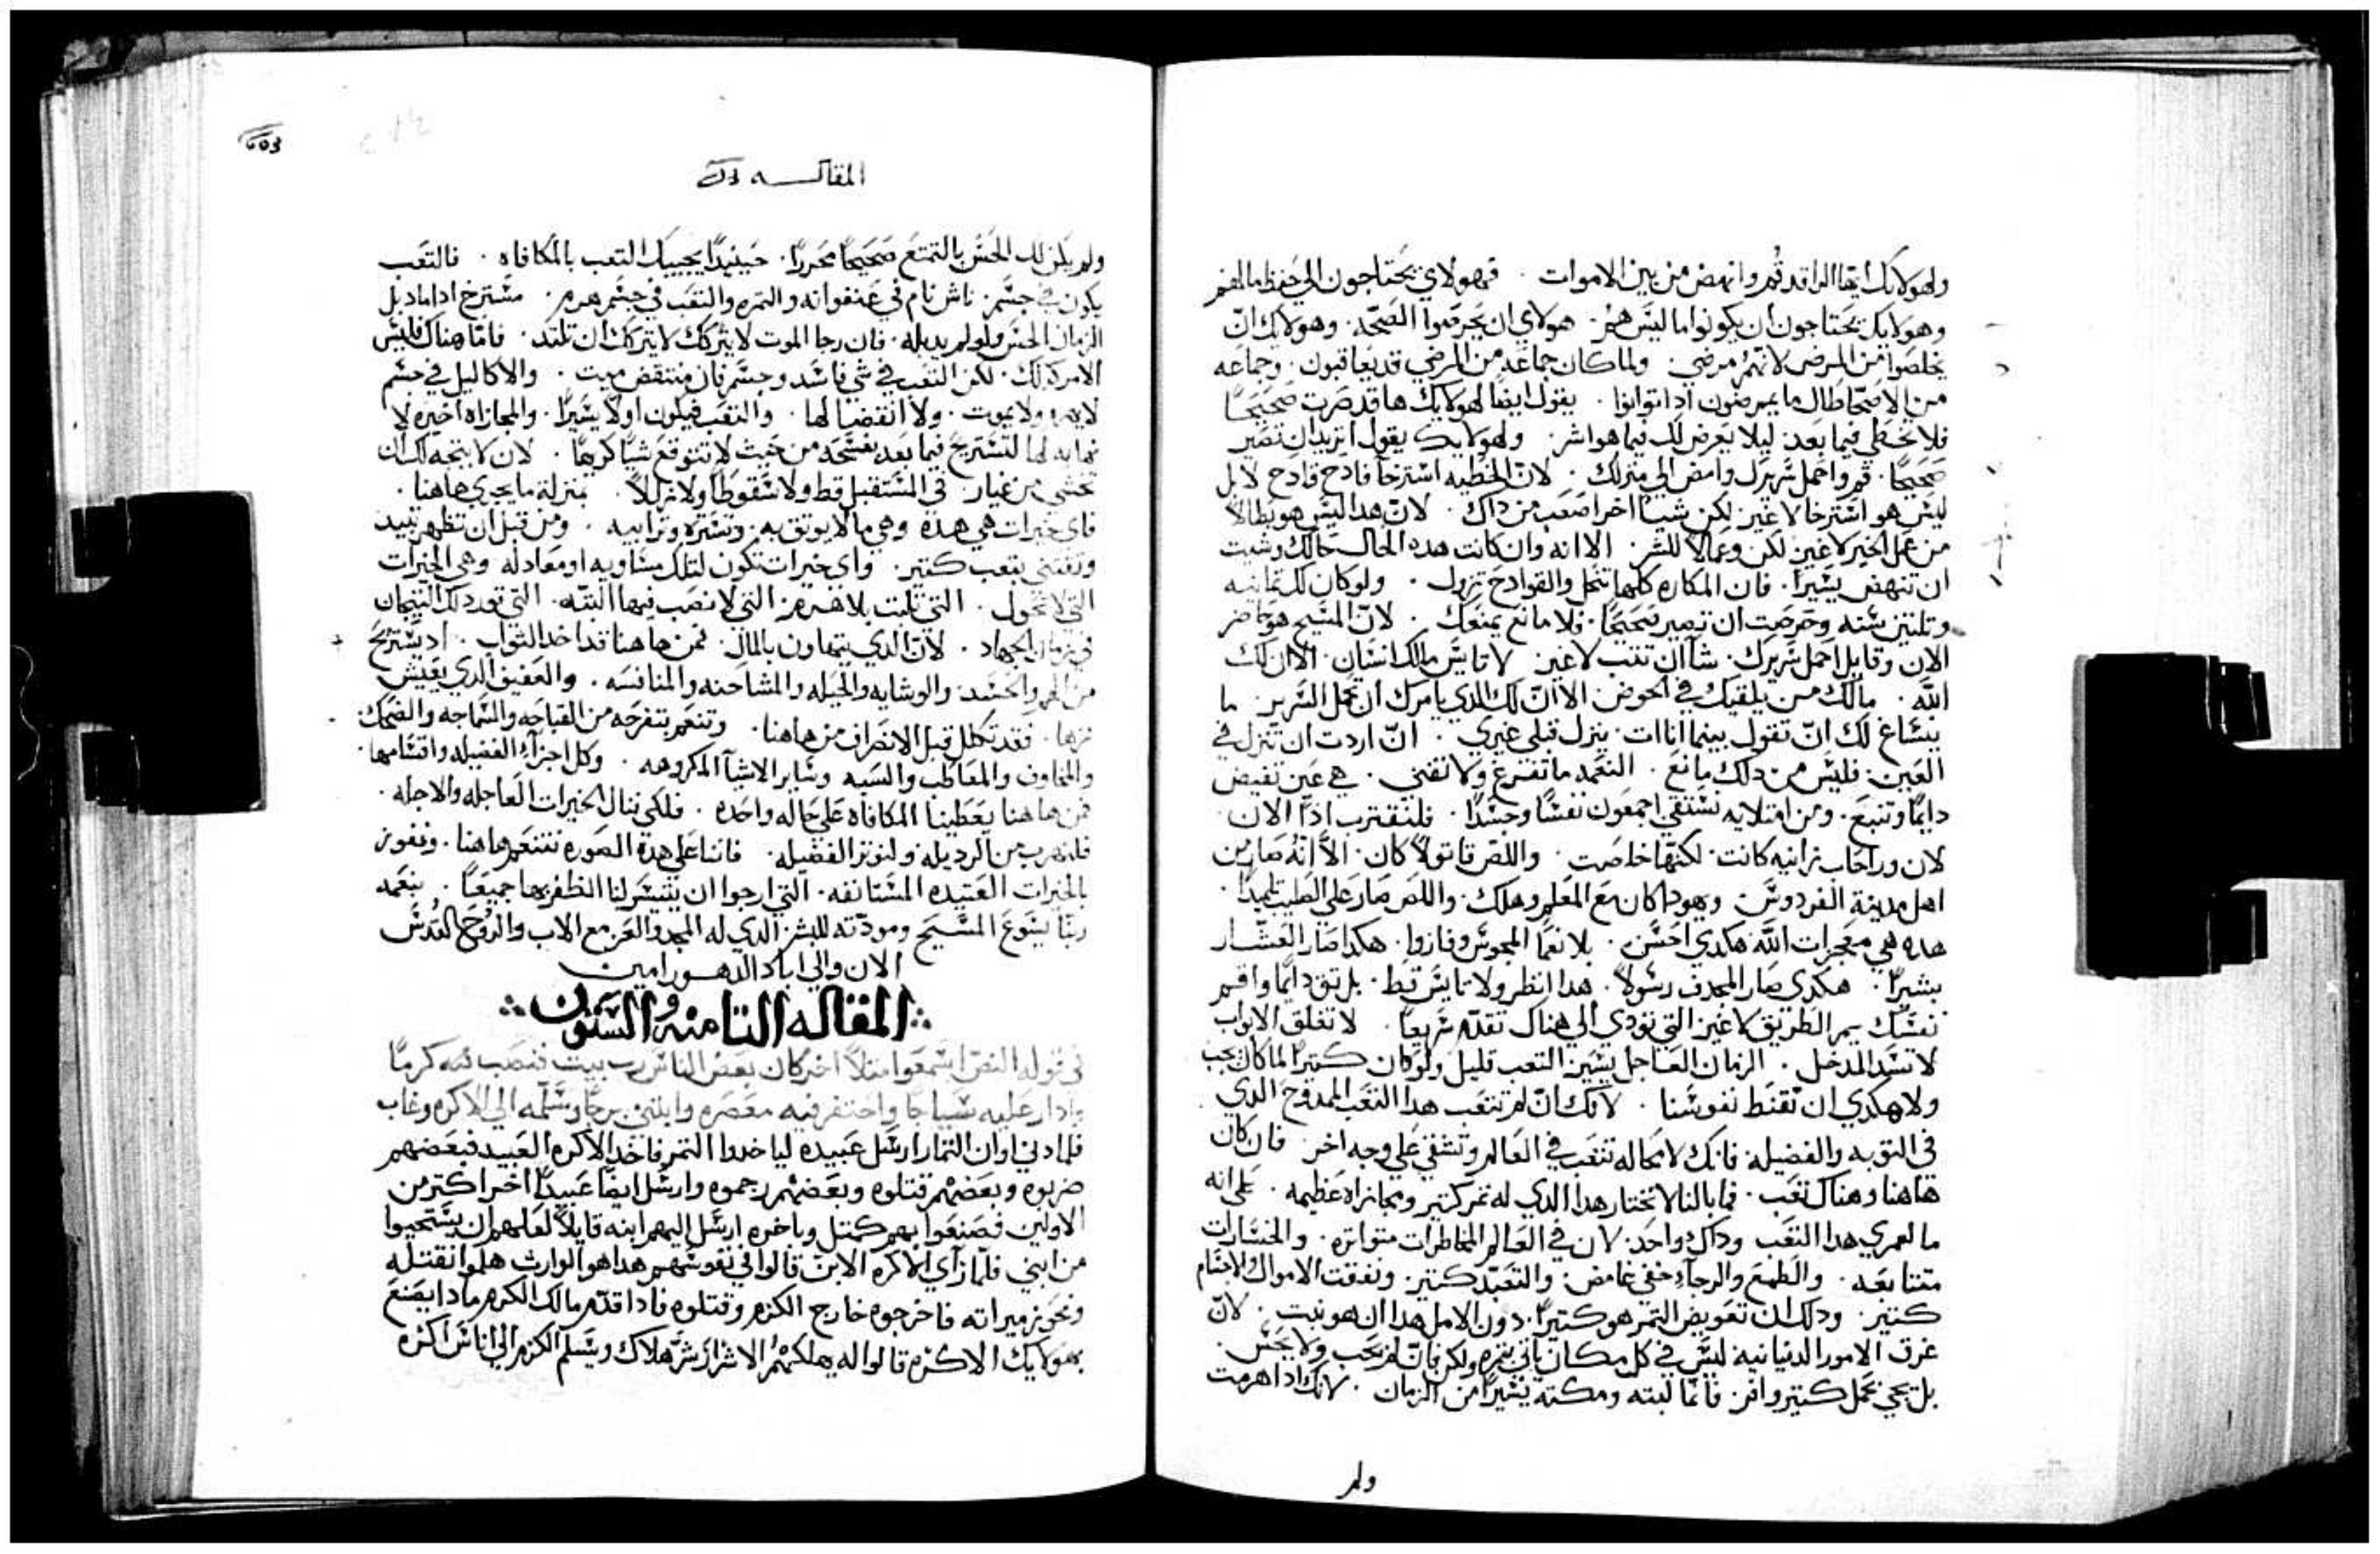 ولهولايك ايها الراقد قم وانهض من بين الاموات . فهولاي يحتاجون الي حفظ مالهم
وهولايك يحتاجون ان يكونوا ما ليس هم . هولاي ان يحرصوا الصحه . وهولايك ان
يخلصوا من المرض لانهم مرضي . ولما كان جماعه من المرضي قد يعاقبون . وجماعه
من الاصحا طال ما يمرضون اذا توانوا . يقول ايضا لهولايك ها قد صرت صحيحا
فلا تخطي فيما بعد . ليلا يعرض لك فيما هو اشر . ولهولايك يقول اتريد ان تصير
صحيحا . قم واحمل سريرك وامض الي منزلك . لان الخطيه استرخا فادح فادح لا بل
ليس هو استرخا لا غير لكن شيا اخر اصعب من داك . لان هدا ليس هو بطالا
من عمل الخير لا غير لكن وعمالا للشر . الا انه وان كانت هده الحال حالك وشيت
ان تنهض يسيرا . فان المكاره كلها تنحل والقوادح تزول . ولو كان لك تمانيه
وتلتين سنه وحرصت ان تصير صحيحا . فلا مانع يمنعك . لان المسيح هو حاضر
الان وقايل احمل سريرك . شا ان تتب لا غير . لا تايس مالك انسان . الا ان لك
الله . مالك من يلقيك في الحوض . الا ان لك الدي يامرك ان تحمل السرير . ما
ينساغ لك ان تقول بينما انا ات . ينزل قبلي غيري . ان اردت ان تنزل في
العين . فليس من دلك مانع . النعمه ما تفرغ ولا تفني . هي عين تفيض
دايما وتنبع . ومن امتلايه نستقي اجمعون نفسا وجسدا . فلنقترب ادا الان
لان وراحاب زانيه كانت . لكنها خلصت . واللص قاتولا كان . الا انه صار من
اهل مدينة الفردوس . ويهودا كان مع المعلم وهلك . واللص صار علي الصليب تلميدا .
هده هي معجزات الله هكدي احسن . بلا نعما المجوس وفازوا . هكدا صار العشار
بشيرا . هكدي صار المجدف رسولا . هدا انظر ولا تايس قط . بل تق دايما واقم
نفسك يمر الطريق لا غير التي تودي الي هناك تقدم سريعا . لا تغلق الابواب
لا تسد المدخل . الزمان العاجل يسير . التعب قليل ولو كان كتيرا لما كان يجب
ولا هكدي ان نقنط نفوسنا . لانك ان لم تتعب هدا التعب الممدوح الدي
في التوبه والفضيله . فانك لا محاله تتعب في العالم وتشقي علي وجه اخر . فان كان
هاهنا وهناك تعب . فما بالنا لا نختار هدا الدي له تمر كتير ومجازاه عظيمه . علي انه
ما لعمري هدا التعب وداك واحد . لان في العالم المخاطرات متواتره . والخسارات
متتابعه . والطمع والرجاء خفي غامض . والتعبد كتير . ونفقت الاموال والاجسام
كتير . ودلك ان تعويض التمر هو كتيرا . دون الامل هدا ان هو نبت . لان
عرق الامور الدنيانيه ليس في كل مكان ياتي بتمره ولكن فان لم يخب ولا يخس .
بل يجي بحمل كتير وافر . فانما لبته ومكته يسيرا من الزمان . لانك ادا هرمت
ولم
603
المقالـــه
ولم يكن لك الحس بالتمتع صحيحا محررا . حينيدا يجيبك التعب بالمكافاه . فالتعب
يكون في جسم . ناش نام في عنفوانه والتمره والتعب في جسم هرم . مسترخ اداما دبل
الزمان الحس ولو لم يدبله . فان رجا الموت لا يتركك لا يتركك ان تلتد . فاما هناك فليس
الامر كدلك . لكن التعب في شي فاسد وجسم فان منتقض ميت . والاكاليل في جسم
لا يهرم ولا يموت . ولا انقضا لها . والتعب فيكون اولا يسيرا . والمجازاه اخيره لا
نهايه لها لتستريح فيما بعد بفسحه من حيث لا تتوقع شيا كريها . لان لا يتجه لك ان
تخشي من غيار . في المستقبل قط ولا سقوطا ولا زللا . بمنزلة ما يجري هاهنا .
فاي خيرات هي هده وهي ما لا يوتق به . وتستره وترابيه . ومن قبل ان تظهر تبيد
وتقتني بتعب كتير . واي خيرات تكون لتلك مساويه او معادله وهي الخيرات
التي لا تحول . التي تلبت بلا هرم . التي لا نصب فيها البته . التي تورد لك التيجان
في زمان الجهاد . لان الدي يتهاون بالمال . فمن هاهنا قد اخد الثواب . اد يستريح
من الهم والحسد . والوشايه والحيله والمشاحنه والمنافسه . والعفيف الدي يعيش
نزها . فقد تكلل قبل الانصراف من هاهنا . وتنعم بتفرجه من القباحه والسماجه والضحك .
والمخاوف والمعاطب والسبه وساير الاشيا المكروهه . وكل اجزاء الفضيله واقسامها .
فمن هاهنا يعطينا المكافاه علي حاله واحده . فلكي ننال الخيرات العاجله والاجله .
فلنهرب من الرديله ولنوتر الفضيله . فاننا علي هدة الصوره نتنعم هاهنا . ونفوز
بالخيرات العتيده المستانفه . التي ارجوا ان يتيسر لنا الظفر بها جميعا . بنعمه
ربنا يسوع المسيح ومودته للبشر الدي له المجد والعز مع الاب والروح القدس
الان والي اباد الدهـــور امين
المقاله التامنه والستون
في قوله النص اسمعوا متلا اخر كان بعض الناس رب بيت فنصب فيه كرما
وادار عليه سياجا واحتفر فيه معصره وابتني برجا وسلمه الي الاكره وغاب
فلما دني اوان التمار ارسل عبيده لياخدوا التمر فاخد الاكره العبيد فبعضهم
ضربوه وبعضهم قتلوه وبعضهم رجموه وارسل ايضا عبيدا اخر اكتر من
الاولين فصنعوا بهم كمتل وباخره ارسل اليهم ابنه قايلا لعلهم ان يستحيوا
من ابني فلما راي الاكره الابن قالوا في نفوسهم هدا هو الوارث هلموا نقتله
ونحوز ميراته فاخرجوه خارج الكرم وقتلوه فادا قدم مالك الكرم مادا يصنع
بهولايك الاكره قالوا له يهلكهم الاشرار شر هلاك ويسلم الكرم الي اناس اكره